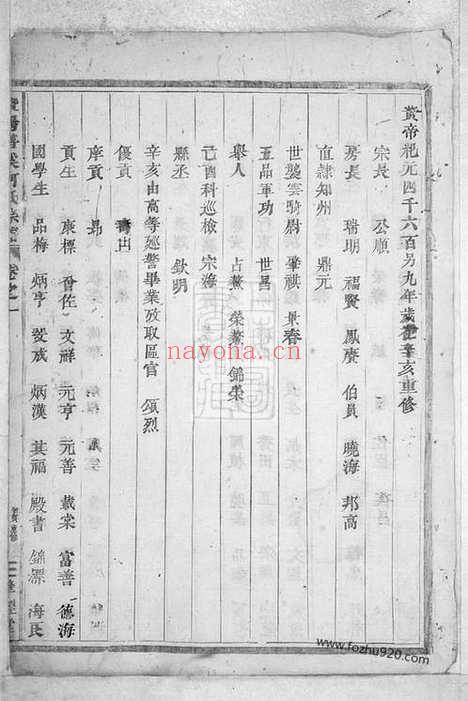 黃帝紀元四千六百另九年歲在辛亥重修
宗長 公順
房長 瑞明 福賢 鳳賡 伯員 曉海 邦高
直隸知州 鼎元
世襲雲騎尉 肇祺 景春
五品軍功 世昌
舉人 占鰲 榮鰲 錦榮
己酉科巡檢 宗海
縣丞 欽明
辛亥由高等巡警畢業攷取區官 頌烈
優貢
歲貢 昂
貢生 康標 文祥 元亨 元善 載棠 富善 德海
國學生 品梅 炳亨 發成 炳漢 其福 殿書 海民
卷之一
nayona.cn
www.fozhu920.com